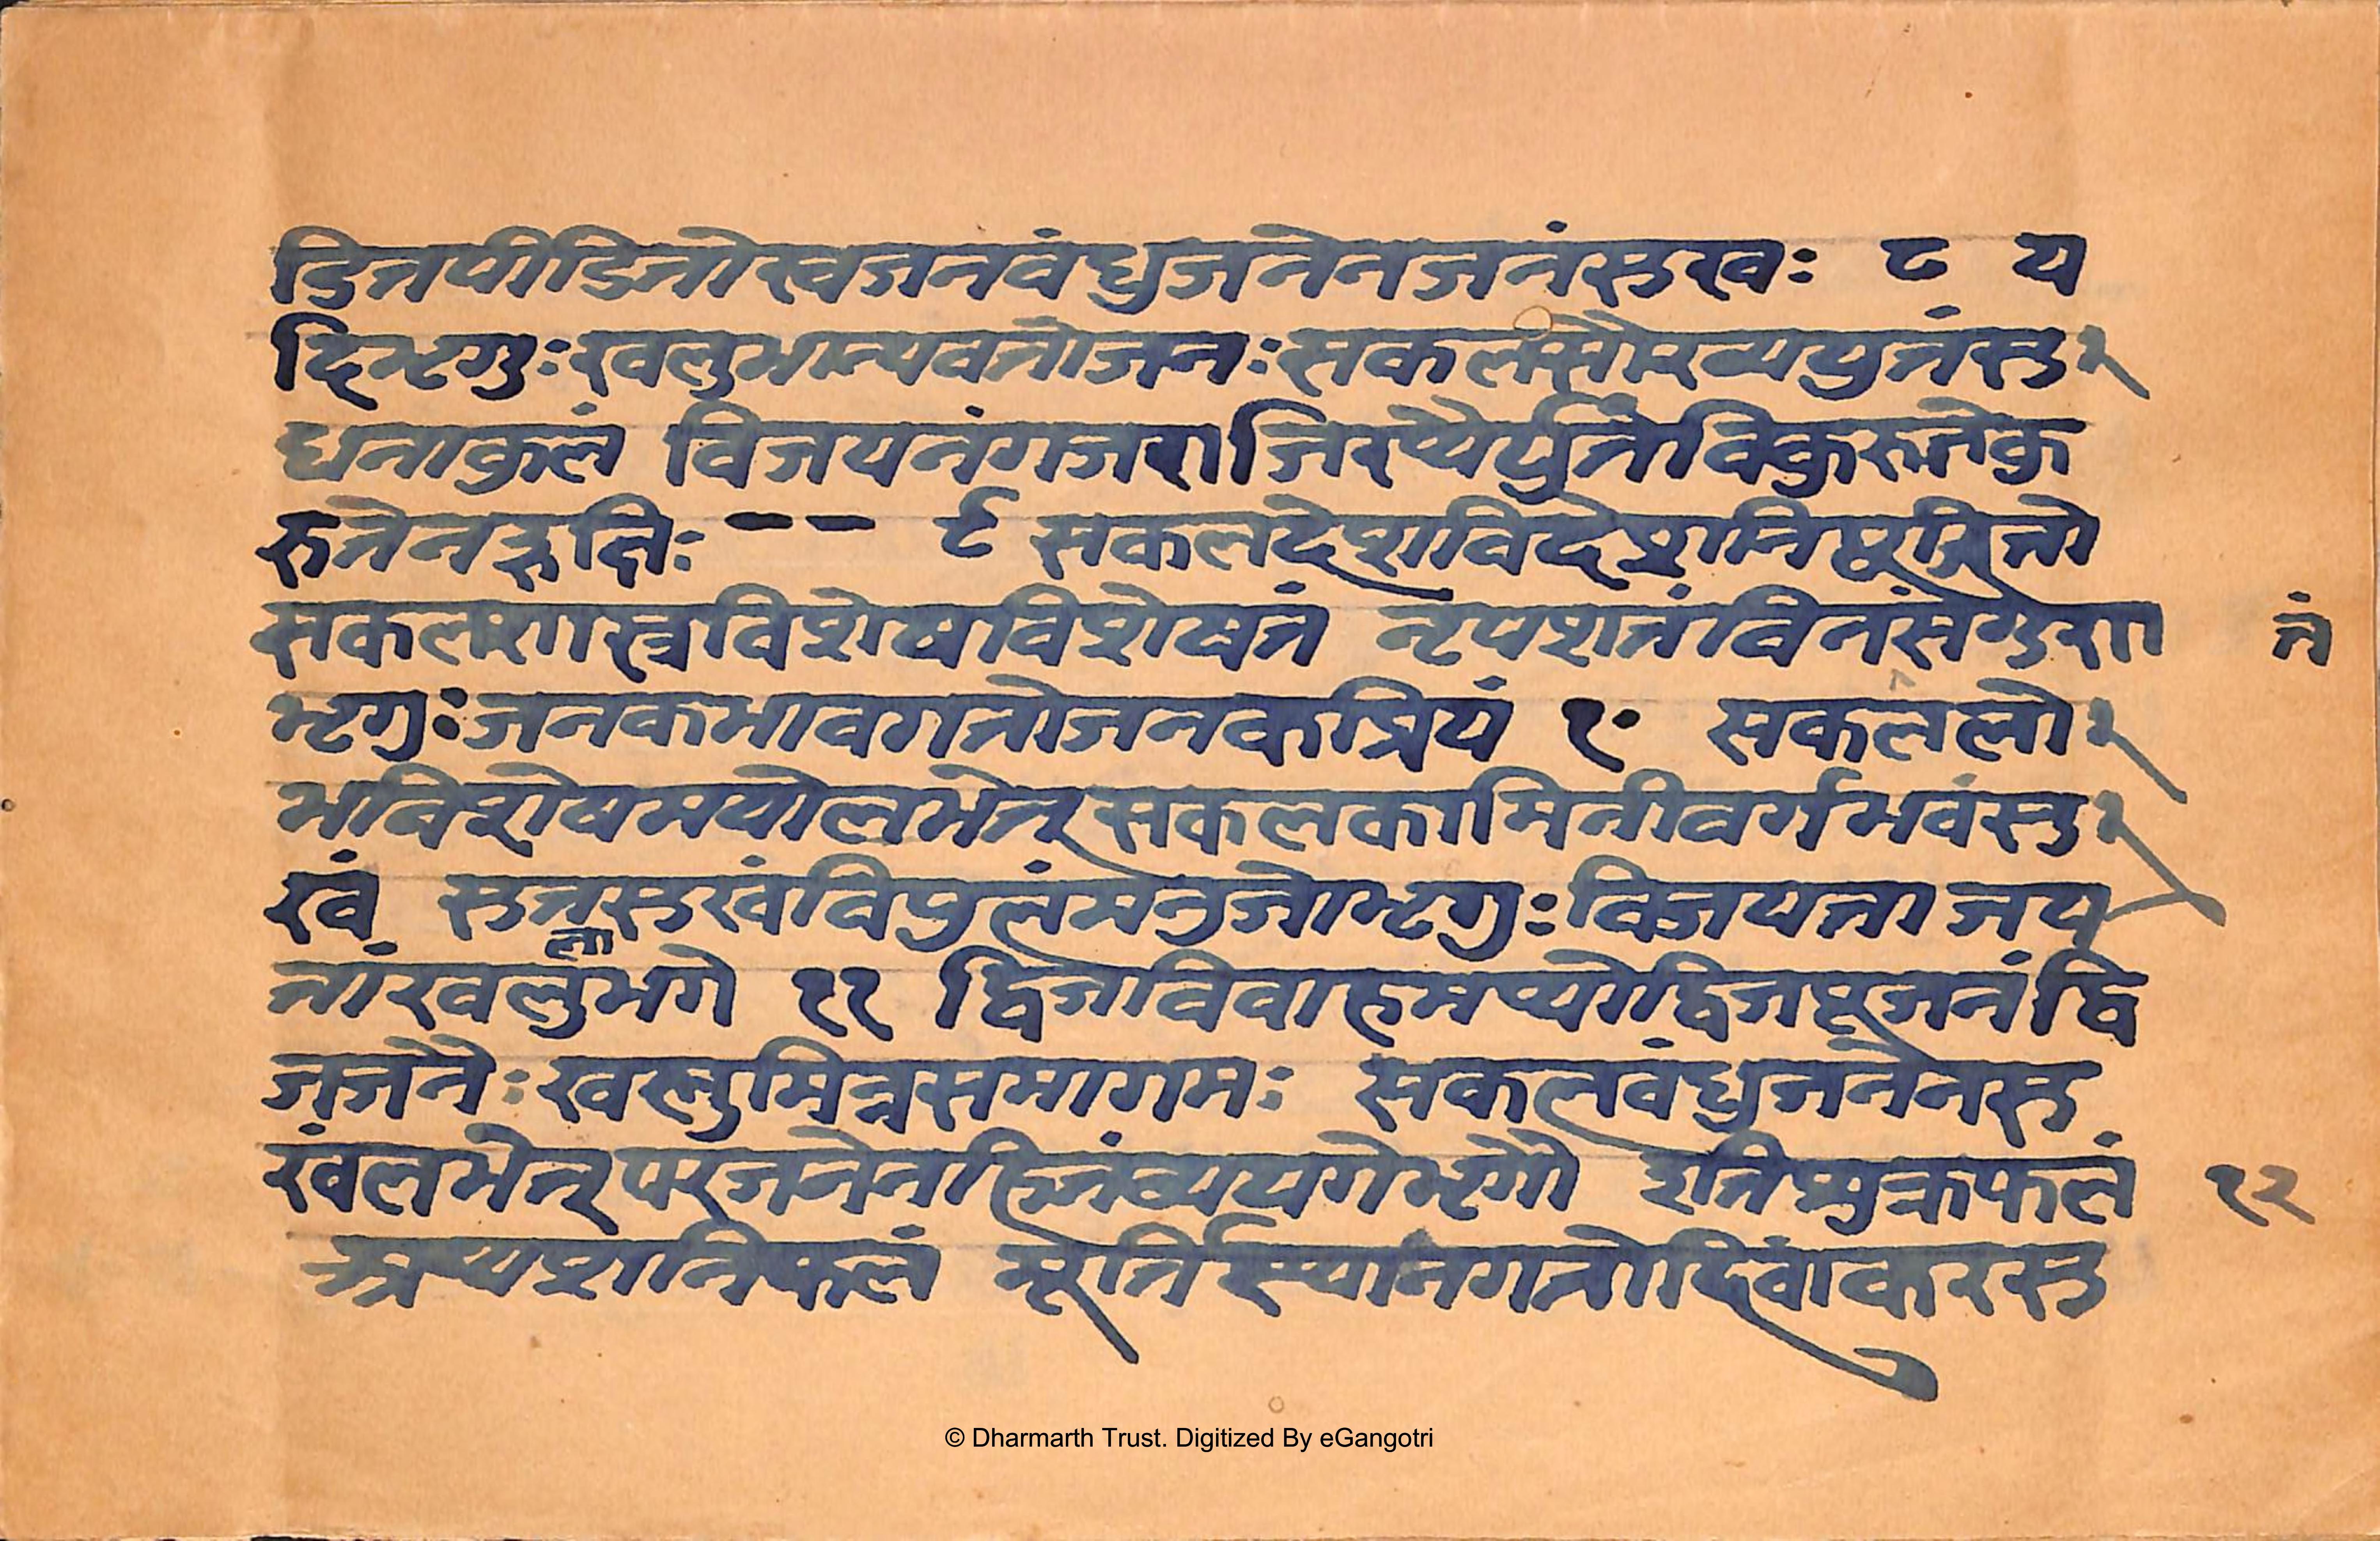 डितपीडितोखजनवंधुजनेनजनंसुखः ८ य
दिभृगुःखलुभान्यवतोजनःसकलसौरव्ययुतंसु
धनाकुलं विजयनंगजराजिरप्यैर्युतंविकुरुतेकु
रुतेनहृतिः -- ९ सकलदेशविदेशनिपूजितो
सकलशास्त्रविशेषविशेषतं नृपशतंवितसंगुरा तं
भृगुःजनकभावगतोजनकप्रियं १० सकललो
भविशेषमयोलभेत् सकलकामिनीवर्गभवंसु
खं सुतसुखंविपुलंमनुजोभृगुःविजयताजय
तांखलुलाभगे ११ द्विजविवाहमप्योद्विजपूजनंद्वि
जजनैःखलुमित्रसमागमः सकलवंधुजनेनसु
खंलभेत् परजनेनहितंव्ययगेभृगौ इतिशुक्रफलं १२
अथशनिफलं मूर्तिस्थानगतोदिवाकरसु
© Dharmarth Trust. Digitized By eGangotri